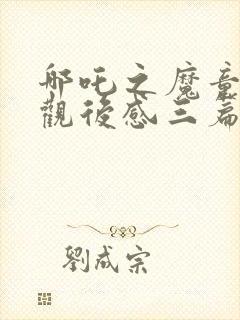 哪吒之魔童
觀後感三篇
劉成宗